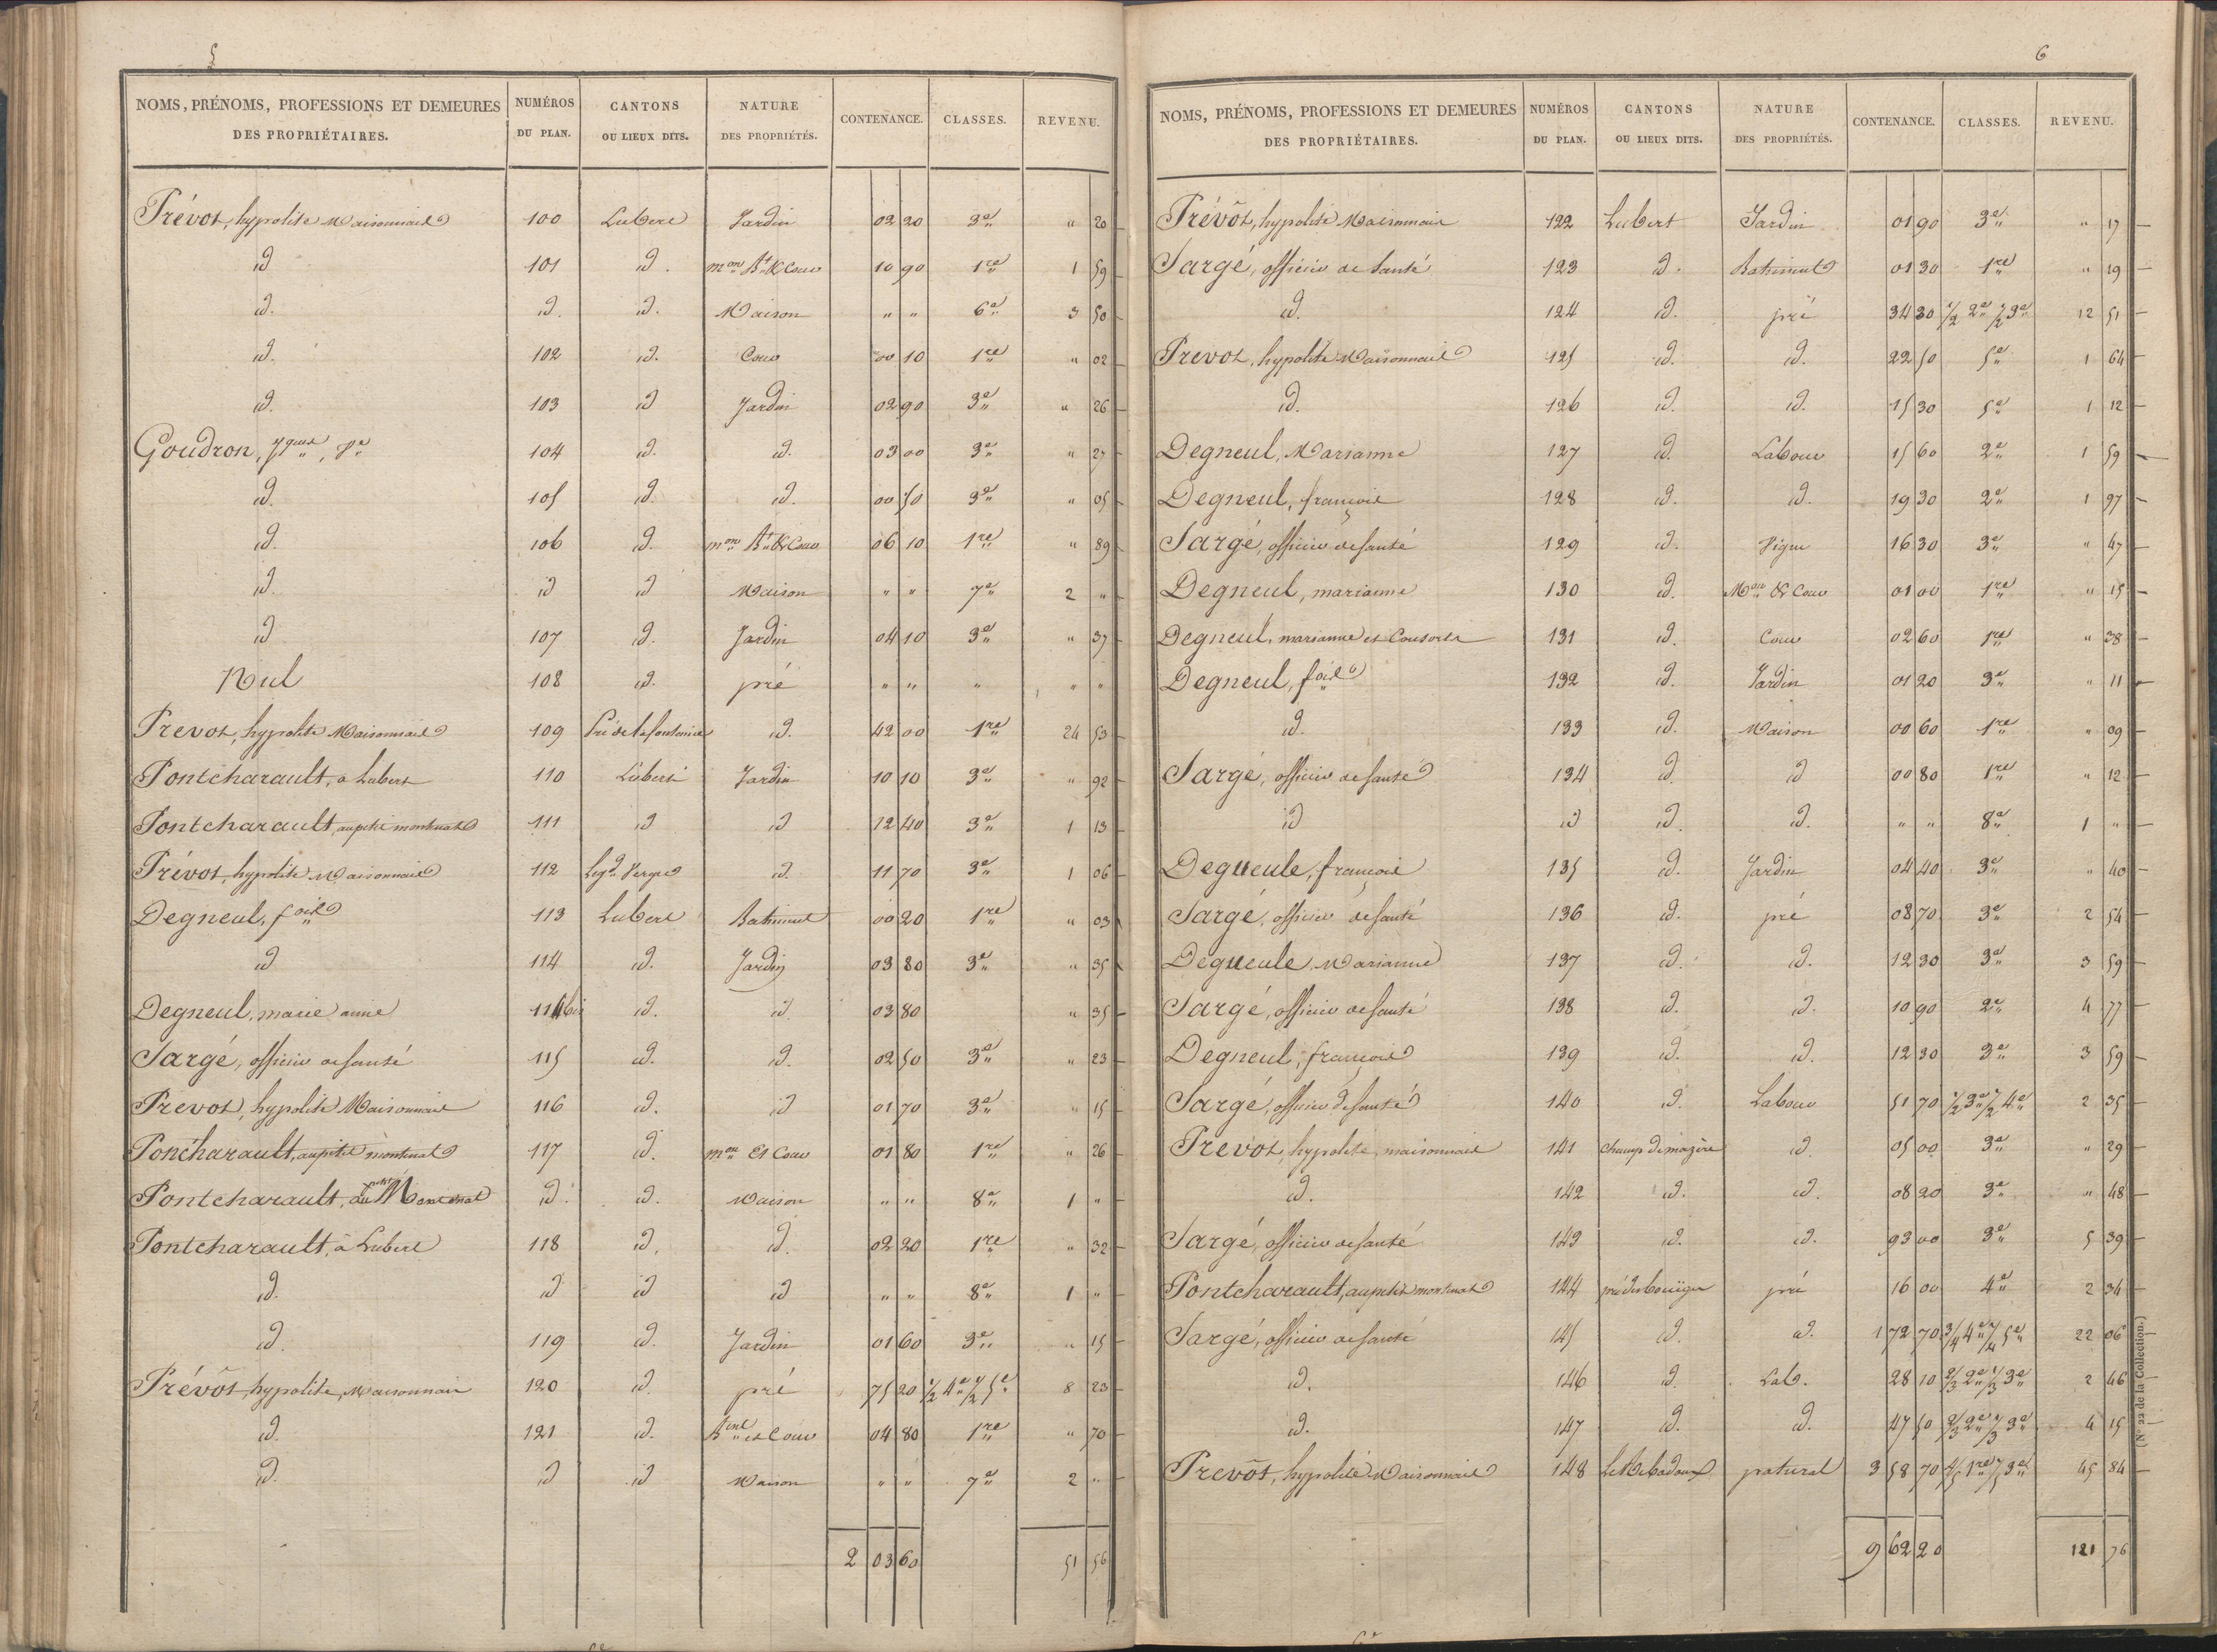 5
NOMS, PRÉNOMS, PROFESSIONS ET DEMEURES DES PROPRIÉTAIRES. NUMÉROS DU PLAN. CANTONS OU LIEUX DITS. NATURE DES PROPRIÉTÉS. CONTENANCE. CLASSES. REVENU.
Prévost, hypolite Maisonnais 100 Lubert Jardin 02 20 3e " 20
id 101 id. mon Bt & Cour 10 90 1re 1 59
id. id. id. Maison " " 6e 3 50
id. 102 id. Cour 00 10 1re " 02
id. 103 id Jardin 02 90 3e " 26
Goudron, Jques, 104 id. id. 03 00 3e " 27
id. 105 id. id. 00 50 3e " 05
id. 106 id. mon Bt & Cour 06 10 1re " 89
id. id id Maison " " 7e 2 "
id 107 id. Jardin 04 10 3e " 37
Nul 108 id. pré " " " " "
Prevot, hypolite Maisonnais 109 Pré de la fontaine id. 42 00 1re 24 53
Pontcharault, à Lubert 110 Lubert Jardin 10 10 3e " 92
Pontcharault, au petit montinat 111 id id 12 40 3e 1 13
Prévot, hypolite Maisonnais 112 Le gd Verger id. 11 70 3e 1 06
Degneul, fois 113 Lubert Batiment 00 20 1re " 03
id 114 id. Jardin 03 80 3e " 35
Degneul, marie anne 114 bis id. id. 03 80 " 35
Sargé, officier de santé 115 id. id. 02 50 3e " 23
Prevot, hypolite Maisonnais 116 id. id 01 70 3e " 15
Poncharault, au petit montinat 117 id. mon et Cour 01 80 1re " 26
Pontcharault, au petit Montinat id. id. Maison " " 8e 1 "
Pontcharault, à Lubert 118 id. id. 02 20 1re " 32
id. id id id " " 8e 1 "
id. 119 id. Jardin 01 60 3e " 15
Prévôt, hypolite, Maisonnais 120 id. pré 75 20 1/2 4e 1/2 5e 8 23
id. 121 id. Bent et Cour 04 80 1re " 70
id. id id Maison " " 7e 2 "
2 03 60 51 56
6
NOMS, PRÉNOMS, PROFESSIONS ET DEMEURES DES PROPRIÉTAIRES. NUMÉROS DU PLAN. CANTONS OU LIEUX DITS. NATURE DES PROPRIÉTÉS. CONTENANCE. CLASSES. REVENU.
Prévôt, hypolite Maisonnais 122 Lubert Jardin 01 90 3e " 17
Sargé, officier de Santé 123 id. Batiment 01 30 1re " 19
id. 124 id. pré 34 30 1/2 2e 1/2 3e 12 51
Prevot, hypolite Maisonnais 125 id. id. 22 50 5e 1 64
id. 126 id. id. 15 30 5e 1 12
Degneul, Marianne 127 id. Labour 15 60 2e 1 59
Degneul, françois 128 id. id. 19 30 2e 1 97
Sargé, officier de santé 129 id. Vigne 16 30 3e " 47
Degneul, marianne 130 id. Mon & Cour 01 00 1re " 15
Degneul, marianne et Consorts 131 id. Cour 02 60 1re " 38
Degneul, fois 132 id. Jardin 01 20 3e " 11
id. 133 id. Maison 00 60 1re " 09
Sargé, officier de santé 134 id. id 00 80 1re " 12
id id id. id. " " 8e 1 "
Degueule, françois 135 id. Jardin 04 40 3e " 40
Sargé, officier de santé 136 id. pré 08 70 3e 2 54
Degueule, Marianne 137 id. id. 12 30 3e 3 59
Sargé, officier de santé 138 id. id. 10 90 2e 4 77
Degneul, françois 139 id. id. 12 30 3e 3 59
Sargé, officier de santé 140 id. Labour 51 70 1/2 3e 1/2 4e 2 35
Prevot, hypolite, maisonnais 141 Champ de mazère id. 05 00 3e " 29
id. 142 id. id. 08 20 3e " 48
Sargé, officier de santé 143 id. id. 93 00 3e 5 39
Pontcharault, au petit montinat 144 pré des bouiges pré 16 00 4e 2 34
Sargé, officier de santé 145 id. id. 1 72 70 3/4 4e 1/4 5e 22 06
id. 146 id. Lab. 28 10 2/3 2e 1/3 3e 2 46
id. 147 id. id. 47 50 2/3 2e 1/3 3e 4 15
Prevôt, hypolite Maisonnais 148 patural 3 58 70 4/5 1re 1/5 3e 45 84
9 62 20 121 76
(N° 22 de la Collection.)